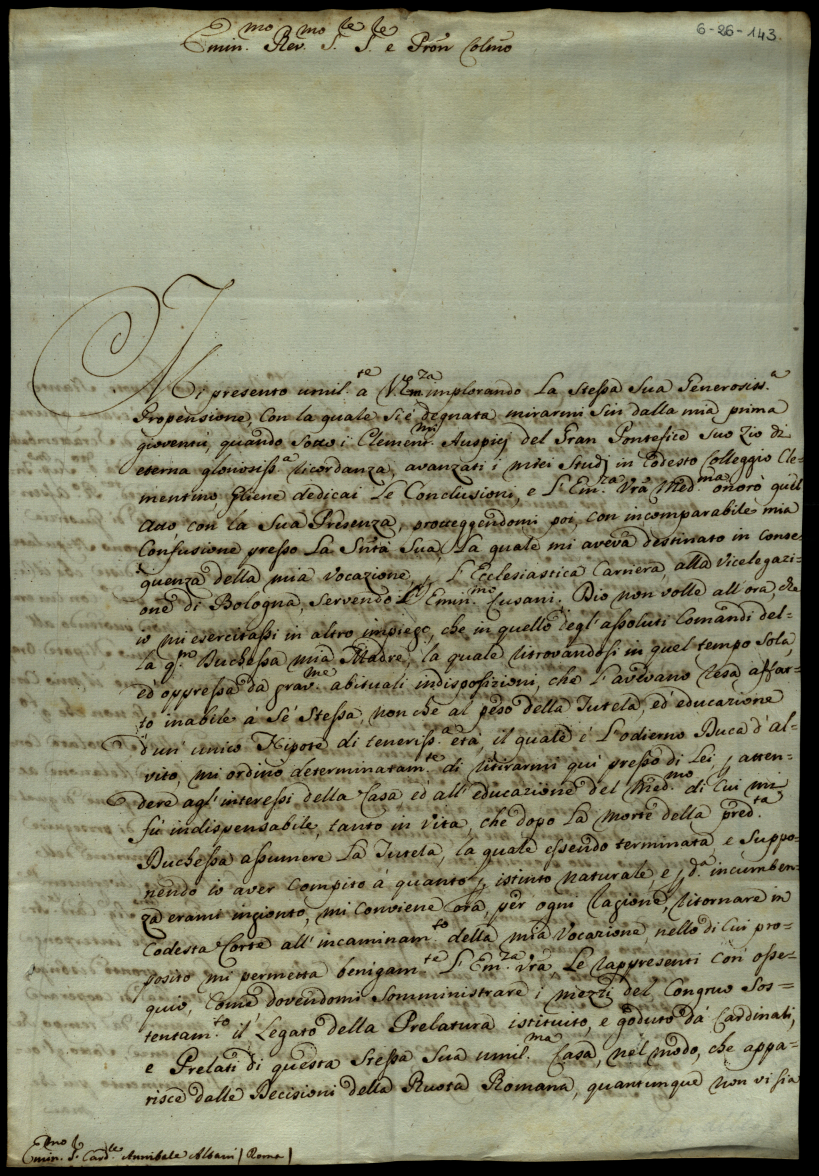 6-26-143.
Emin.mo Rev.mo S.le S.le e Prōn Colmo
Mi presento umil.te a V. Em.za implorando La Stessa Sua Generosiss.a
Propensione, Con la quale Si è degnata mirarmi Sin dalla mia prima
gioventù, quando Sotto i Clement.mi Auspicj del Gran Pontefice Suo Zio di
eterna gloriosiss.a ricordanza, avanzati i miei Studj in Codesto Colleggio Cle=
mentino gliene dedicai Le Conclusioni, e L'Em.za Vrā Med.ma onorò quel
Atto con la Sua Presenza, proteggendomi poi, con incomparabile mia
Confusione presso La Sntà Sua, La quale mi aveva destinato in conse=
quenza della mia Vocazione, p L'Ecclesiastica Carriera, alla Vicelegazi=
one di Bologna, Servendo L'Emin.mo Cusani. Dio non volle all'ora, che
io mi esercitassi in altro impiego, che in quello degl'assoluti Comandi del=
la q.m Duchessa mia Madre, la quale ritrovandosi in quel tempo Sola,
ed oppressa da grav.me abituali indisposizioni, che L'avevano resa affat=
to inabile à Sé Stessa, non che al peso della Tutela, ed educazione
d'un' unico Nipote di teneriss.a età, il quale è L'odierno Duca d'al=
vito, mi ordinò determinatam.te di ritirarmi qui presso di Lei, p atten=
dere agl'interessi della Casa ed all'educazione del Med.mo di Cui mi
fù indispensabile, tanto in vita, che dopo La morte della pred.ta
Duchessa assumere La Tutela, la quale essendo terminata, e Suppo=
nendo io aver Compito à quanto p istinto naturale, e p d.a incumben=
za erami ingionto, mi conviene ora, per ogni ragione, ritornare in
Codesta Corte all'incaminam.to della mia Vocazione, nello di Cui pro=
posito mi permetta benigam.te L'Em.za Vrā, Le rappresenti Con osse=
quio, Come dovendomi Somministrare i mezzi del Congruo Sos=
tentam.to il Legato della Prelatura istituito, e goduto da Cardinali,
e Prelati di questa Stessa Sua umil.ma Casa, nel modo, che appa=
risce dalle Decisioni della Ruota Romana, quantunque non vi sia
Emin.mo S. Card.le Annibale Albani / Roma /